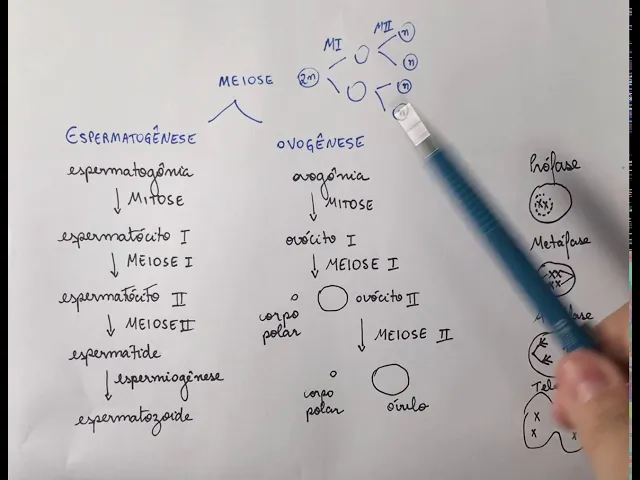 MI
MII
n
n
2n
n
n
MEIOSE
ESPERMATOGÊNESE
espermatogônia
MITOSE
espermatócito I
MEIOSE I
espermatócito II
MEIOSE II
espermatide
espermiogênese
espermatozoide
OVOGÊNESE
ovogônia
MITOSE
ovócito I
MEIOSE I
corpo
polar
ovócito II
MEIOSE II
corpo
polar
óvulo
Prófase
xx
Metáfase
xx
xx
x x
x x